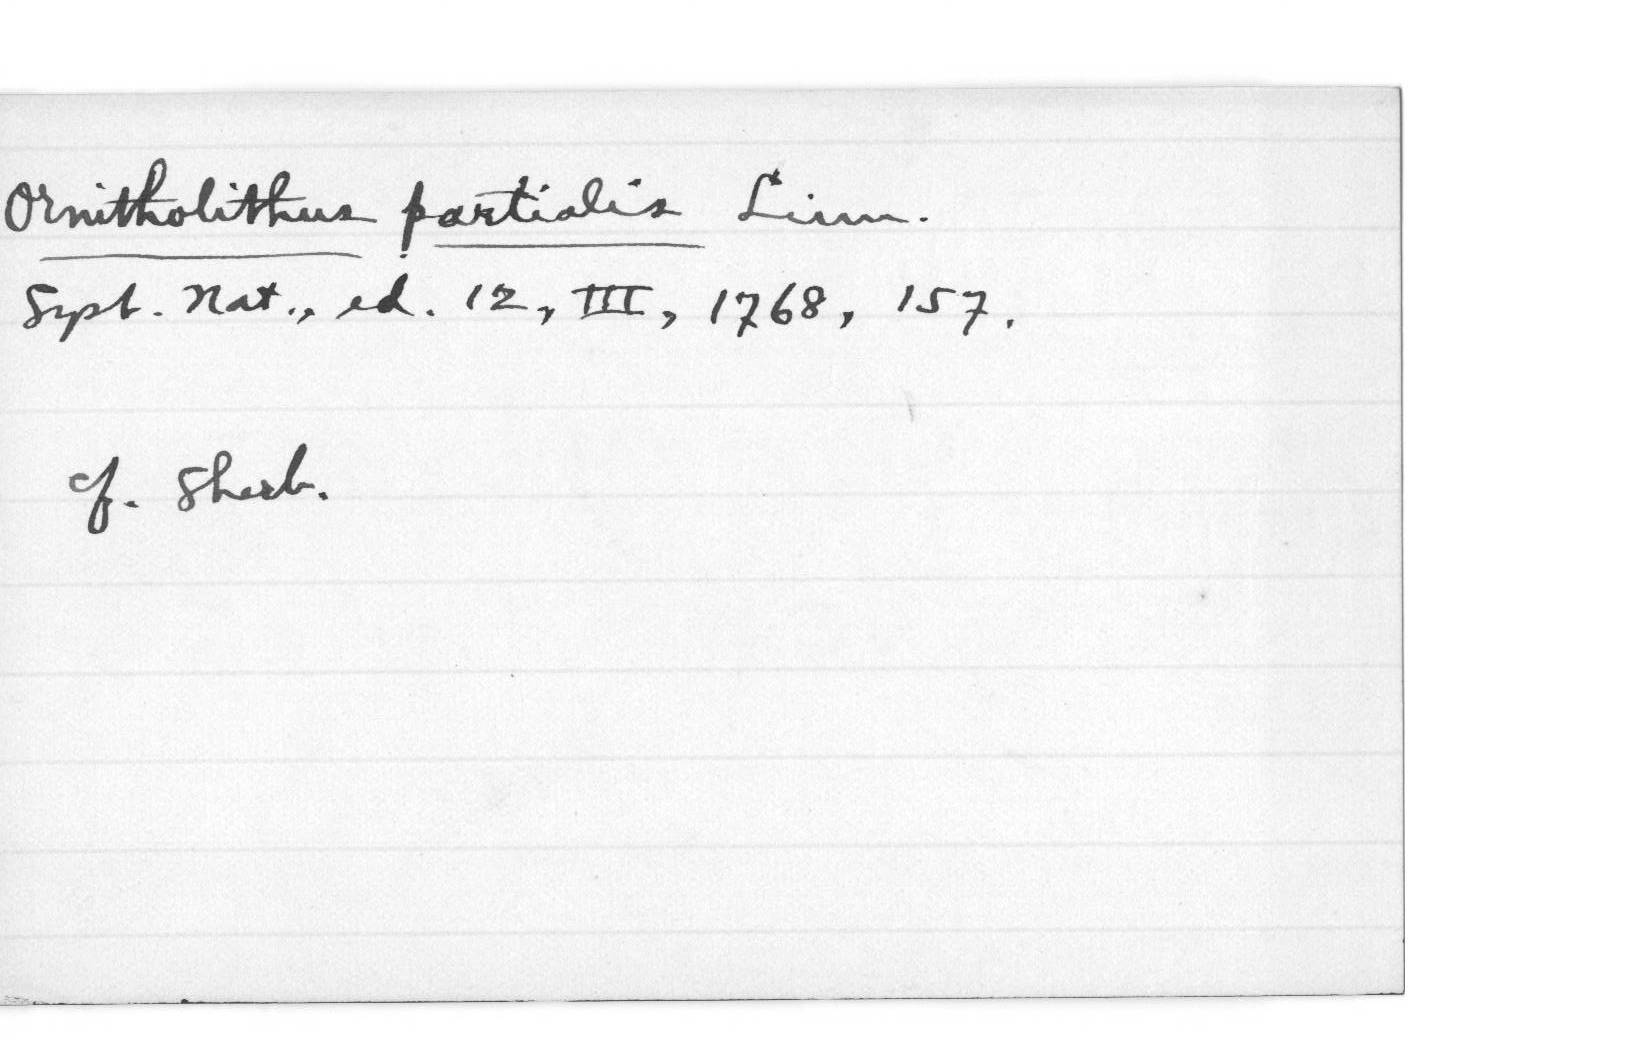 Ornitholithus partialis Linn.
Syst. Nat., ed. 12, III, 1768, 157.
cf. Sherb.